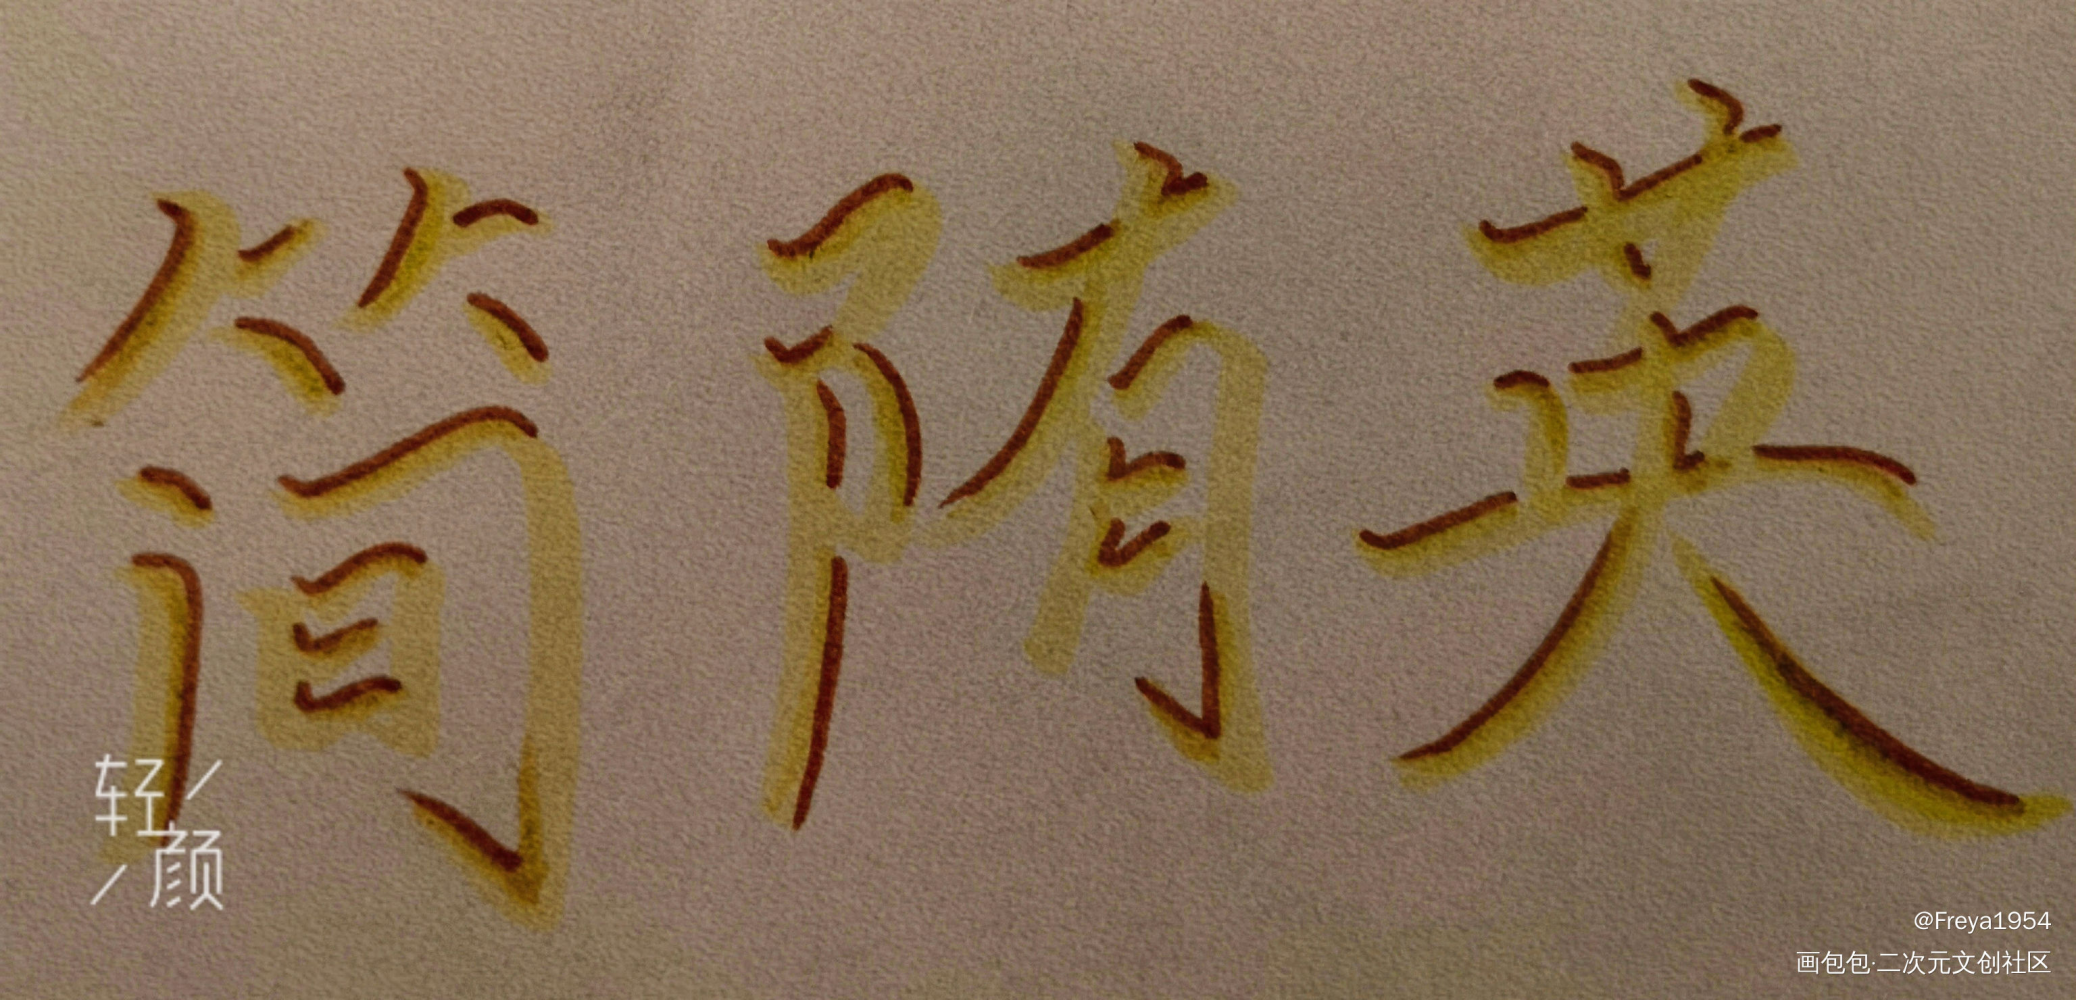 简陏英
轻颜
@Freya1954
画包包·二次元文创社区